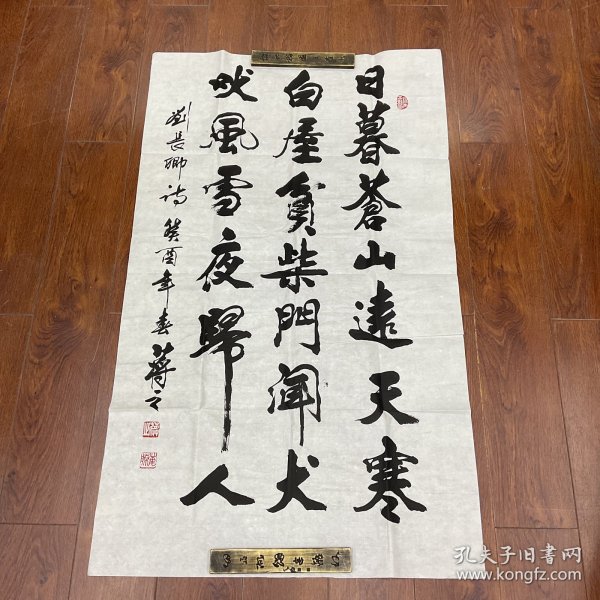 日暮蒼山遠天寒
白屋貧柴門聞犬
吠風雪夜歸人
劉長卿詩 癸酉年春 蔣之
孔夫子旧书网
www.kongfz.com